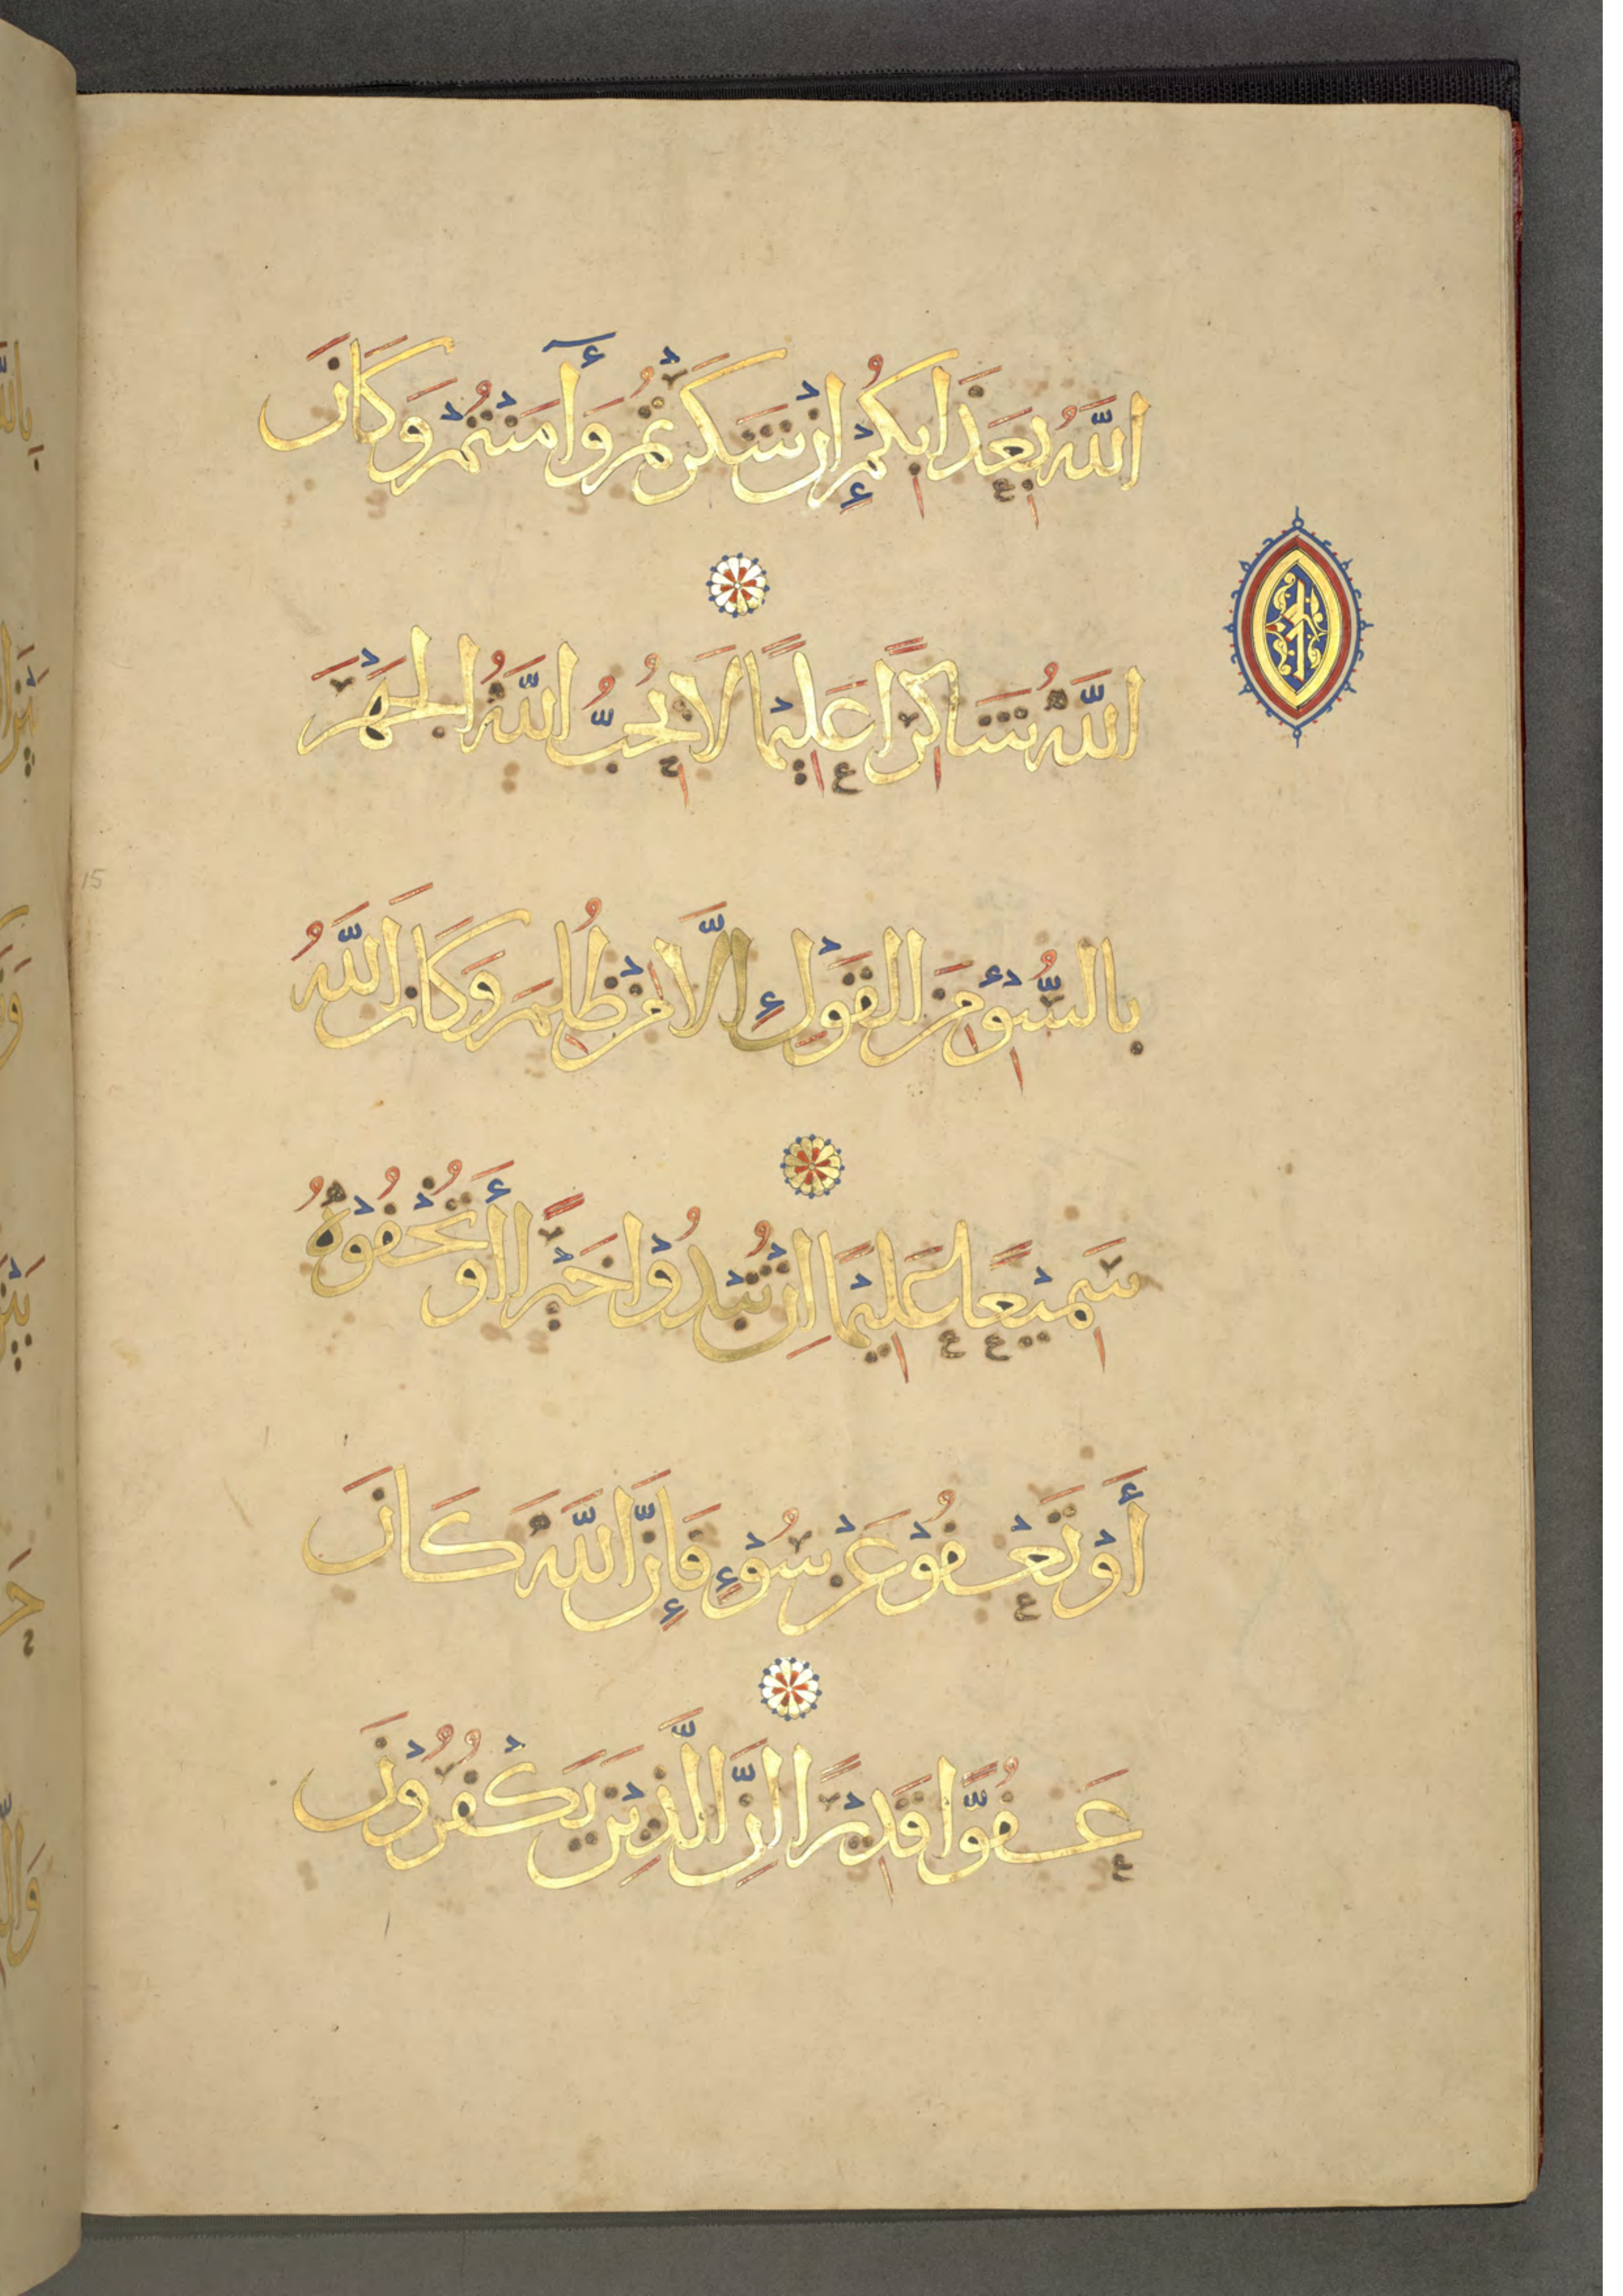 اللَّهُ بِعَذَابِكُمْ إِنْ شَكَرْتُمْ وَآمَنْتُمْ وَكَانَ
اللَّهُ شَاكِرًا عَلِيمًا لَا يُحِبُّ اللَّهُ الْجَهْرَ
بِالسُّوْءِ مِنَ الْقَوْلِ إِلَّا مَنْ ظُلِمَ وَكَانَ اللَّهُ
سَمِيْعًا عَلِيْمًا اِنْ تُبْدُوْا خَيْرًا أَوْ تُخْفُوْهُ
أَوْ تَعْفُوْ عَنْ سُوْءٍ فَإِنَّ اللَّهَ كَانَ
عَفُوًّا قَدِيْرًا اِنَّ الَّذِيْنَ يَكْفُرُوْنَ
15